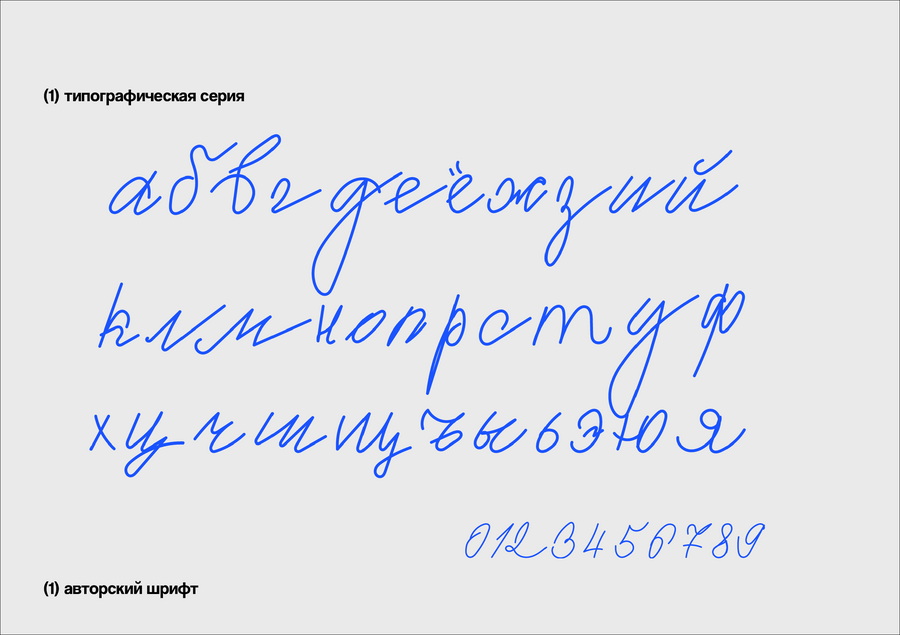 (1) типографическая серия
абвгдеёжзий
клмнопрстуф
хцчшщъыьэюя
0123456789
(1) авторский шрифт